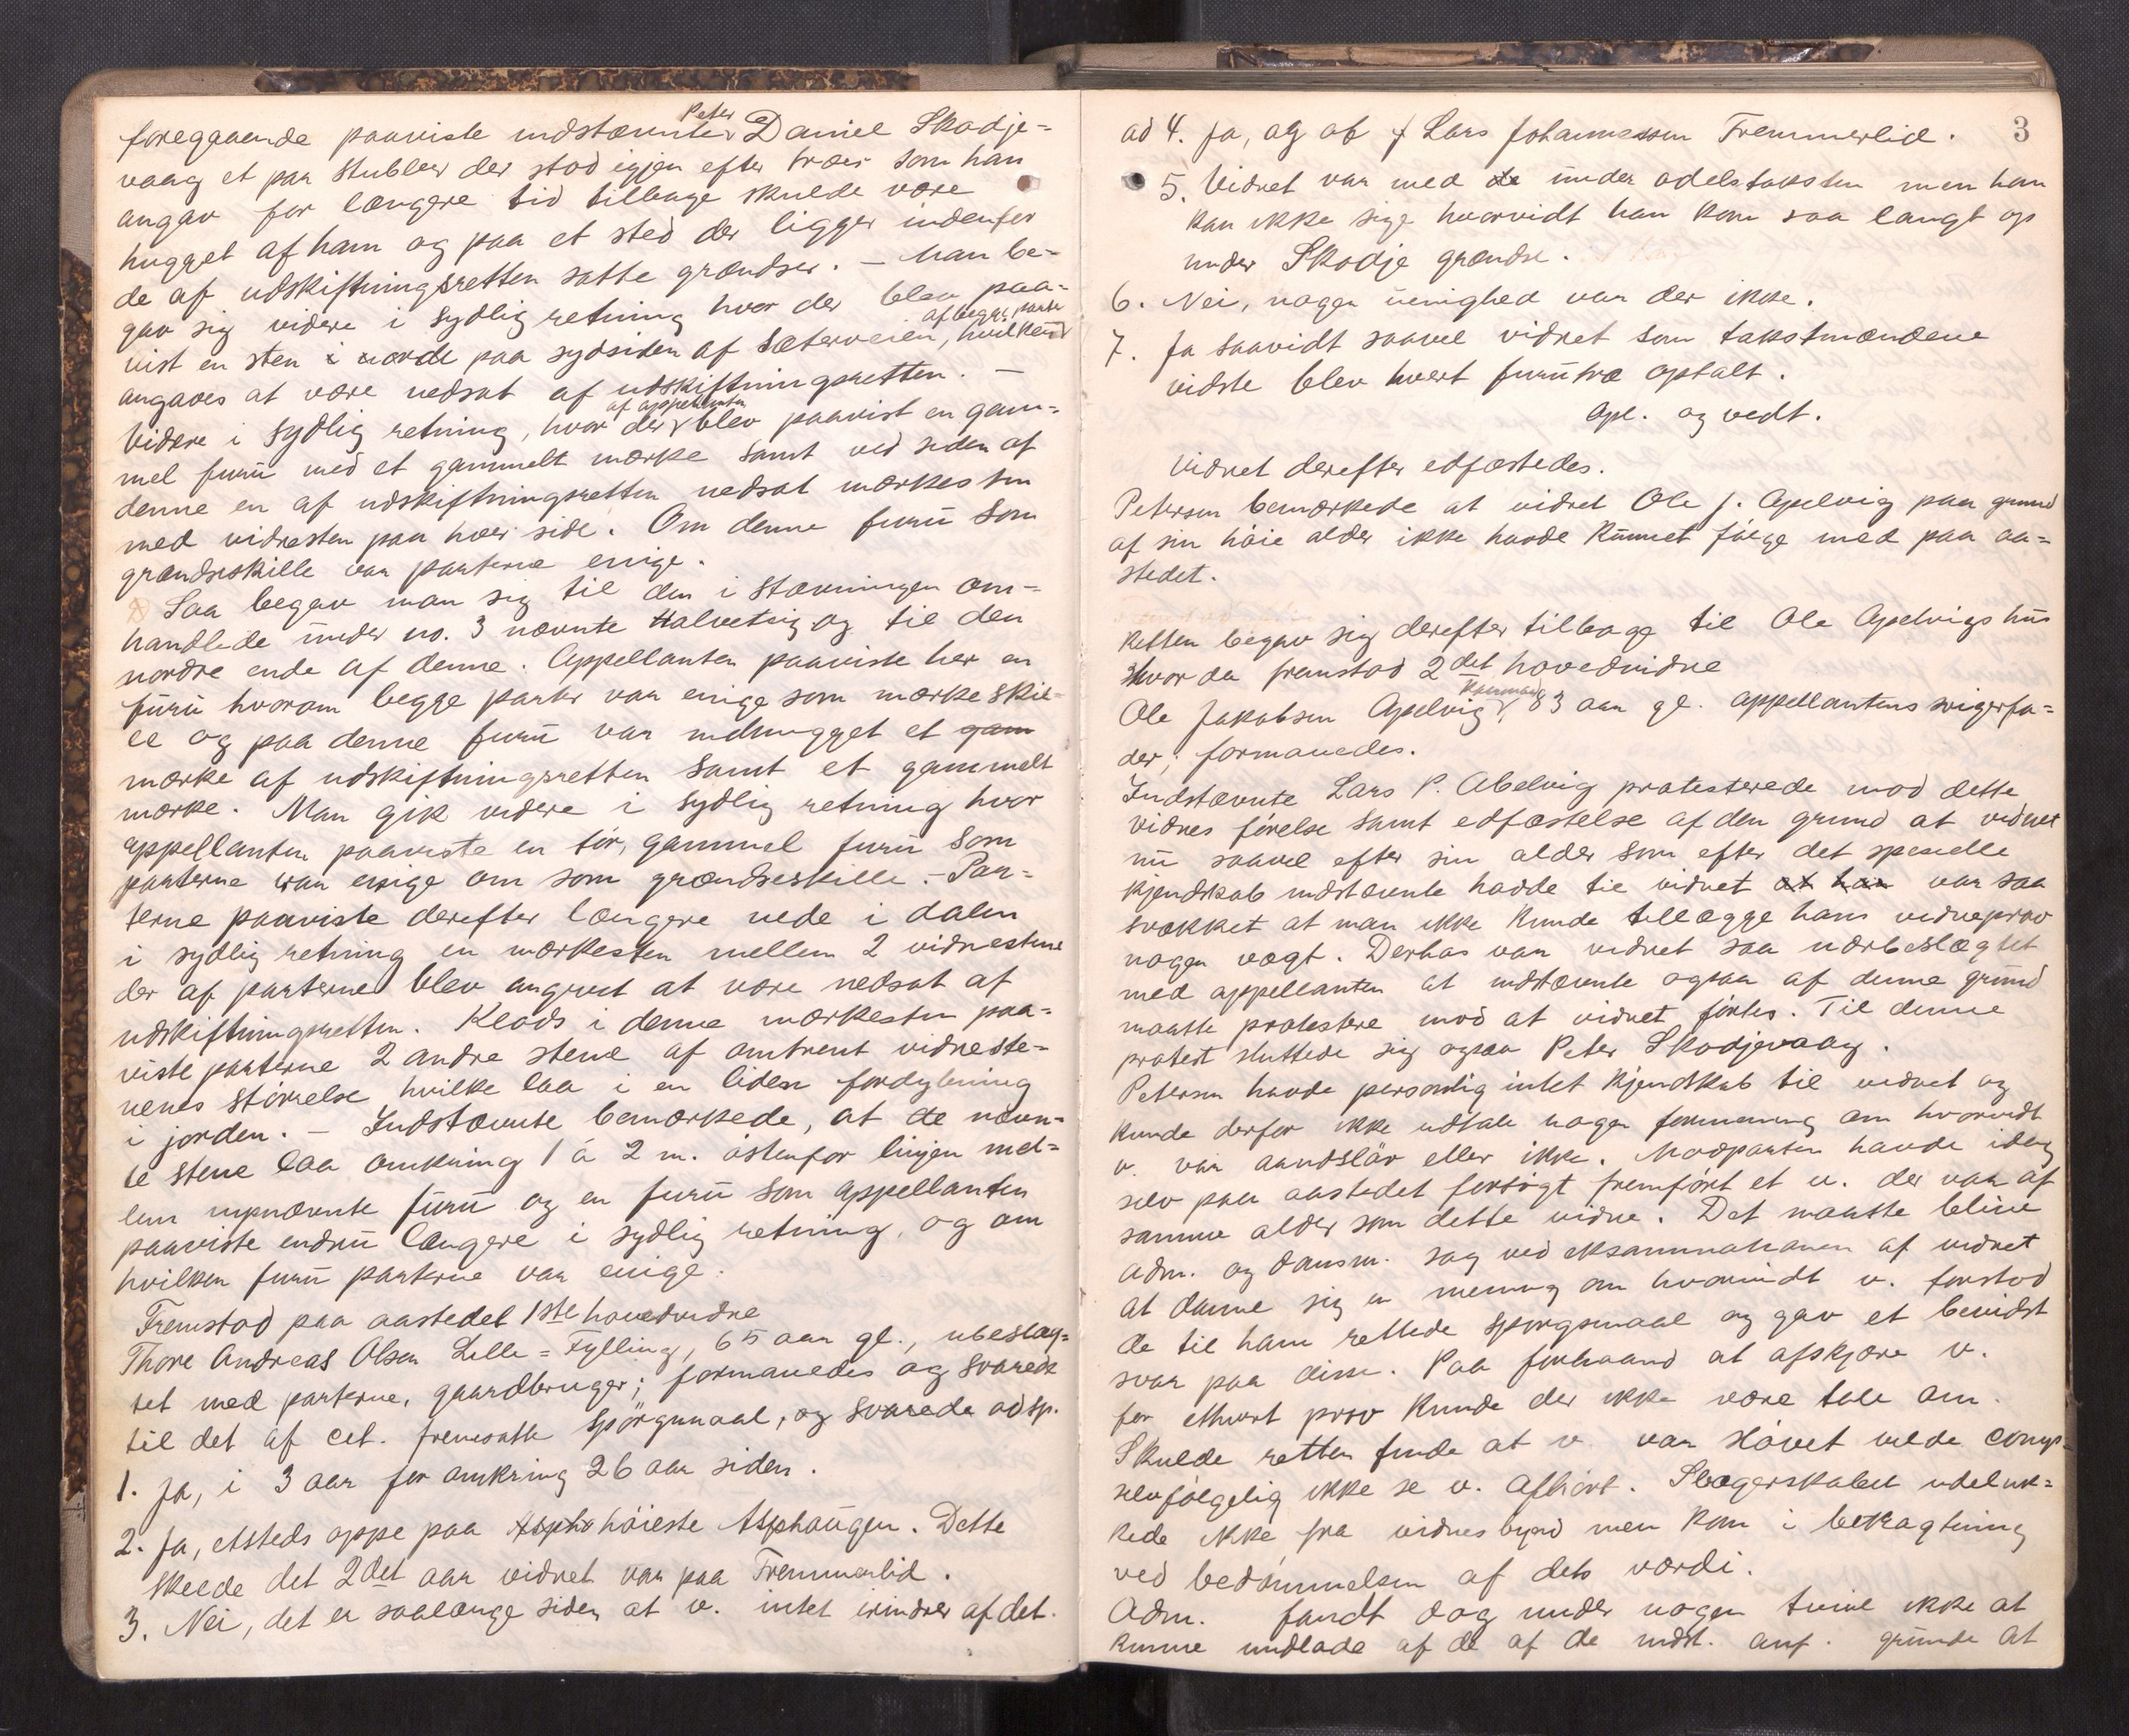 foregaaende paaviste indstævnte Peter Daniel Skodje=
vaag et par stubber der stod igjen efter trær som han
angav for længere tid tilbage skulde være
hugget af ham og paa et sted der ligger indenfor
de af udskiftningsretten satte grændser. – Man be=
gav sig videre i sydlig retning hvor der blev paa=
vist en sten i norde paa sydsiden af sæterveien, af begge parter hvilken
angaves at være nedsat af udskiftningsretten. –
Videre i sydlig retning, hvor der af appellanten blev paavist en gam=
mel furu med et gammelt mærke samt ved siden af
denne en af udskiftningsretten nedsat mærkessten
med vidnesten paa hver side. Om denne furu som
grændseskille var parterne enige.
Saa begav man sig til den i stævningen om=
handlede under no. 3 nævnte Halvetsig og til den
nordre ende af denne. Appellanten paaviste her en
furu hvorom begge parter var enige som mærkeskil=
le og paa denne furu var indhugget et gam
mærke af udskiftningsretten samt et gammelt
mærke. Man gik videre i sydlig retning hvor
appellanten paaviste en tör, gammel furu som
parterne var enige om som grændseskille. – Par=
terne paaviste derefter længere nede i dalen
i sydlig retning en mærkesten mellem 2 vidnestene
der af parterne blev angivet at være nedsat af
udskiftningsretten. Klods i denne mærkesten paa=
viste parterne 2 andre stene af omtrent vidneste=
nenes störrelse hvilke laa i en liden fordybning
i jorden. – Indstævnte bemærkede, at de nævn=
te stene laa omkring 1 à 2 m. östenfor linjen mel=
lem nysnævnte furu og en furu som appellanten
paaviste endnu længere i sydlig retning, og om
hvilken furu parterne var enige.
Fremstod paa aastedet 1ste hovedvidne
Thore Andreas Olsen Lille=Fylling, 65 aar gl., ubeslæg=
tet med parterne, gaardbruger; formanedes og svarede
til det af cit. fremsatte spörgsmaal, og svarede ad sp.
1. Ja, i 3 aar for omkring 26 aar siden.
2. Ja, etsteds oppe paa Aspha höieste Asphaugen. Dette
skeede det 2det aar vidnet var paa Fremmerlid.
3. Nei, det er saalænge siden at v. intet erindrer af det.
3
ad 4. Ja, og af J Lars Johannessen Fremmerlid.
5. Vidnet var med de under odelstaksten men han
kan ikke sige hvorvidt han kom saa langt op
under Skodje grændse.
6. Nei, nogen uenighed var der ikke.
7. Ja saavidt saavel vidnet som takstmændene
vidste blev hvert furutræ optalt.
Opl. og vedt.
Vidnet derefter edfæstedes.
Petersen bemærkede at vidnet Ole J. Apelvig paa grund
af sin höie alder ikke havde kunnet fölge med paa aa=
stedet.
Retten begav sig derefter tilbage til Ole Apelvigs hus
hvor da fremstod 2det hovedvidne
Ole Jakobsen Apelvig, kaarmand, 83 aar gl. appellantens svigerfa=
der; formanedes.
Indstævnte Lars P. Abelvig protesterede mod dette
vidnes förelse samt edfæstelse af den grund at vidnet
nu saavel efter sin alder som efter det specielle
kjendskab indstævnte havde til vidnet at han var saa
svækket at man ikke kunde tillægge hans vidneprov
nogen vægt. Derhos var vidnet saa nærbeslægtet
med appellanten at indstævnte ogsaa af denne grund
maatte protestere mod at vidnet förtes. Til denne
protest sluttede sig ogsaa Peter Skodjevaag.
Petersen havde personlig intet kjendskab til vidnet og
kunde derfor ikke udtale nogen formening om hvorvidt
v. var aandslöv eller ikke. Modparten havde idag
selv paa aastedet forsögt fremfört et v. der var af
samme alder som dette vidne. Det maatte blive
adm. og domsm. sag ved eksaminationen af vidnet
at danne sig en mening om hvorvidt v. forstod
de til ham rettede spörgsmaal og gav et bevidst
svar paa disse. Paa forhaand at afskjære v.
for ethvert prov kunde der ikke være tale om.
Skulde retten finde at v. var slövet vilde comp.
selvfölgelig ikke se v. afhört. Svogerskabet udeluk=
kede ikke fra vidnesbyrd men kom i betragtning
ved bedömmelsen af dets værdi.
Adm. fandt dog under nogen tvivl ikke at
kunne undlade af de af de indst. anf. grunde at